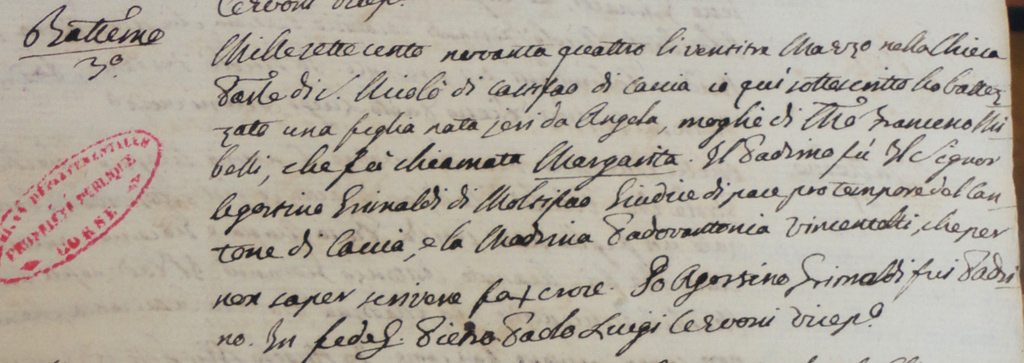 Cervoni vicepº
Battemo
3º
Mille settecento novanta quattro li ventitre Marzo nella Chiesa
Parle di S. Nicolò di Castifao di Caccia io qui sottoscritto ho battez
zato una figlia nata jeri da Angela, moglie di Franceso Mi
belli, che fù chiamata Margarita. Il Padrino fù Il Signor
Agostino Grimaldi di Moltifao Giudice di pace pro tempore del Can-
tone di Caccia, e la Madrina Padovantonia Vincentelli, che per
non saper scrivere fa + croce. Io Agostino Grimaldi fui Padri
no. In fede Pietro Paolo Luigi Cervoni vicepº
ARCHIVES DÉPARTEMENTALES
PROPRIÉTÉ PUBLIQUE
CORSE